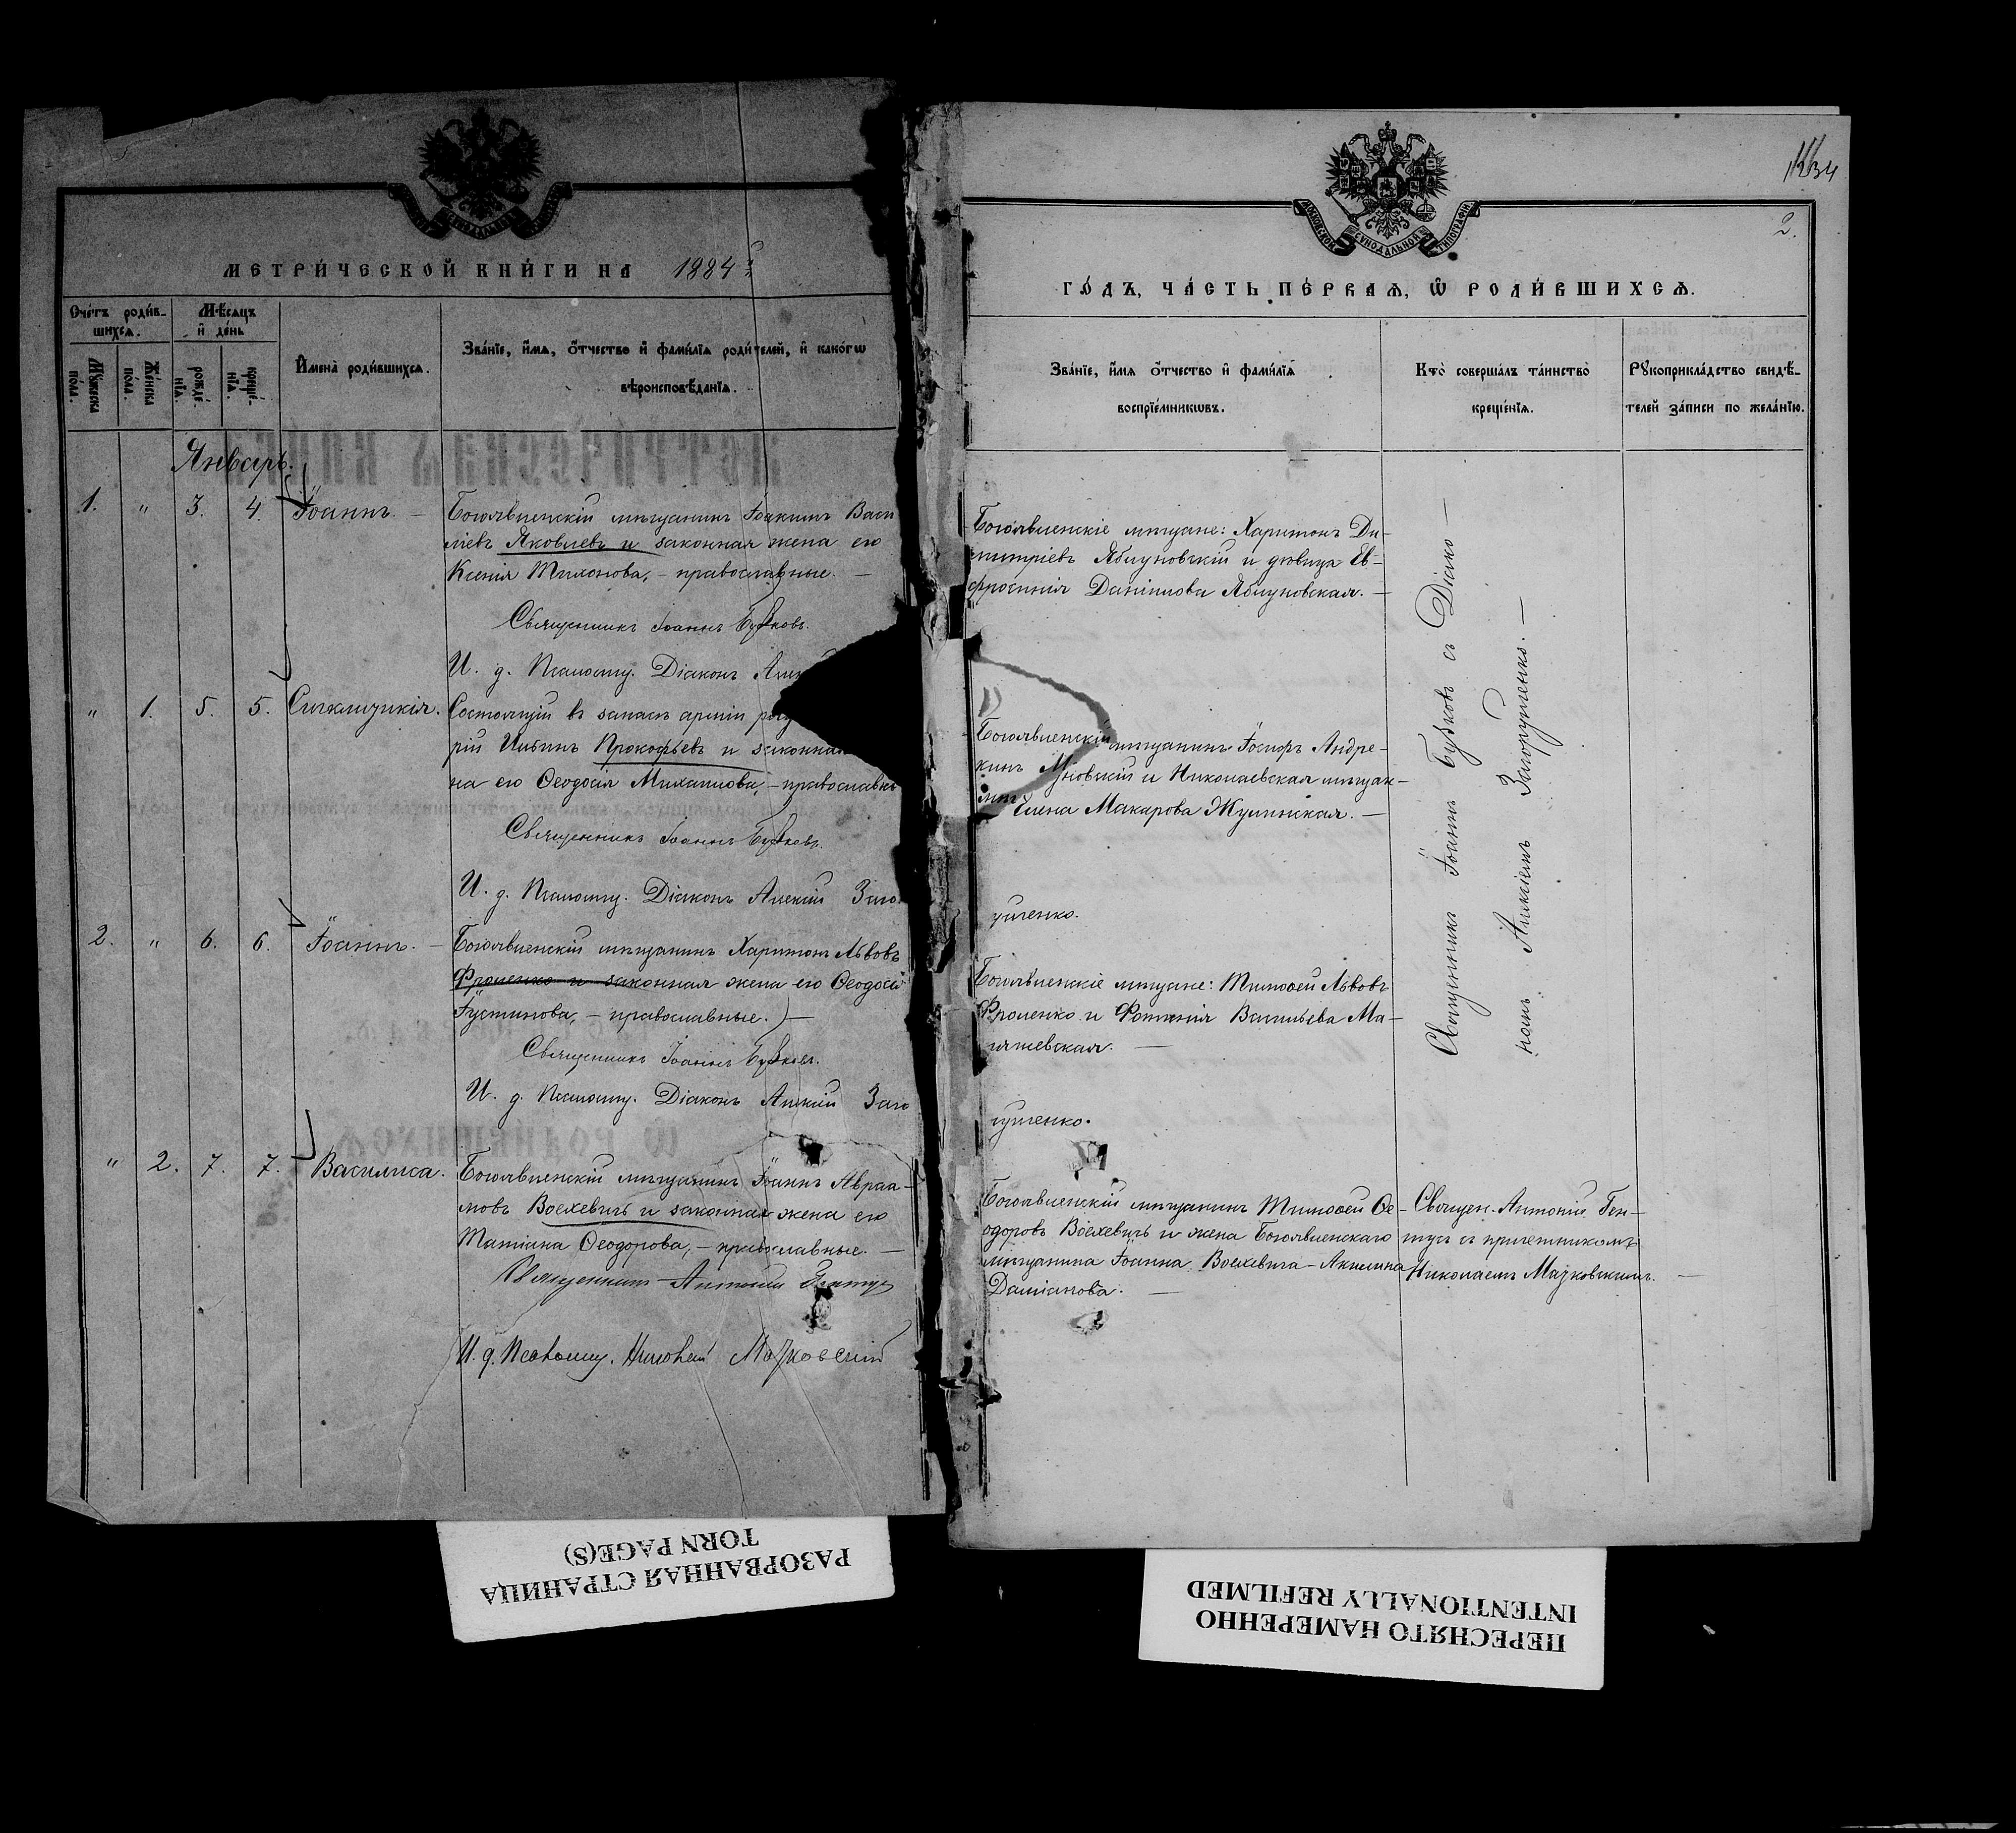 МЕТРИ́ЧЕСКОЙ КНИ́ГИ НА 1884
Сче́тъ роди́в-
шихся.
Мѣ́сяцъ
и҆ де́нь
Мꙋ́жеска по́ла.
Же́нска по́ла.
рожде́-
нїя.
креще́-
нїя.
И҆мена̀ роди́вшихся.
Зва́нїе, и҆́мя, ѻ҆́тчество и҆ фами́лїя роди́телей, и҆ како́гѡ
вѣроисповѣ́данїя.
Январь.
1. " 3. 4. Іоаннъ. —
Богоявленскій мѣщанинъ Іоакимъ Васи
ліевъ Яковлевъ и законная жена его
Ксенія Тихонова, – православные. —
Священникъ Іоаннъ Бузковъ.
И. д. Псаломщ. Діаконъ
" 1. 5. 5. Сигклитикія.
Состоящій въ запасѣ арміи
рій Ильинъ Прокофьевъ и законная
на его Ѳеодосія Михаилова, – православн
Священникъ Іоаннъ Бузковъ.
И. д. Псаломщ. Діаконъ Алексій Заго
2. " 6. 6. Іоаннъ. —
Богоявленскій мѣщанинъ Харитонъ Львовъ
Фроленко и законная жена его Ѳеодосі
Іустинова, – православные. —
Священникъ Іоаннъ Бузковъ.
И. д. Псаломщ. Діаконъ Алексій Заго
" 2. 7. 7. Василиса.
Богоявленскій мѣщанинъ Іоаннъ Авраа-
мовъ Воехевичъ и законная жена его
Татіана Ѳеодорова, – православные. —
Священникъ Антоній Гентуъ
И. д. Псаломщ. Николай Мазковскій
МОСКОВСКОЙ СѴНОДАЛЬНОЙ ТИПОГРАФІИ
34
2.
ГО́ДЪ, ЧА́СТЬ ПЕ́РВАЯ, Ѡ҆ РОДИ́ВШИХСЯ.
Зва́нїе, и҆́мя ѻ҆́тчество и҆ фами́лїя
воспрїе́мникѡвъ.
Кто̀ соверша́лъ та́инство
креще́нїя.
Рꙋкоприкла́дство свидѣ́-
телей за́писи по жела́нїю.
Богоявленскіе мѣщане: Харитонъ Ди-
митріевъ Яблуновскій и дѣвица Ев-
фросинія Даніилова Яблуновская. —
Богоявленскій мѣщанинъ Іосифъ Андре-
Николаевская мѣщан-
Елена Макарова Жулинская. —
ушенко.
Богоявленскіе мѣщане: Тимоѳей Львовъ
Фроленко и Фотинія Васильева Ма-
ушенко.
Богоявленскій мѣщанинъ Тимоѳей Ѳе-
одоровъ Воехевичъ и жена Богоявленскаго
мѣщанина Іоанна Воехевича – Акилина
Даміанова. —
Священникъ Іоаннъ Бузковъ съ Діако —
номъ Алексіемъ Загорушенко. —
Священ. Антоній Ген-
туъ съ причетникомъ
Николаемъ Мазковскимъ. —
РАЗОРВАННАЯ СТРАНИЦА
TORN PAGE(S)
ПЕРЕСНЯТО НАМЕРЕННО
INTENTIONALLY REFILMED